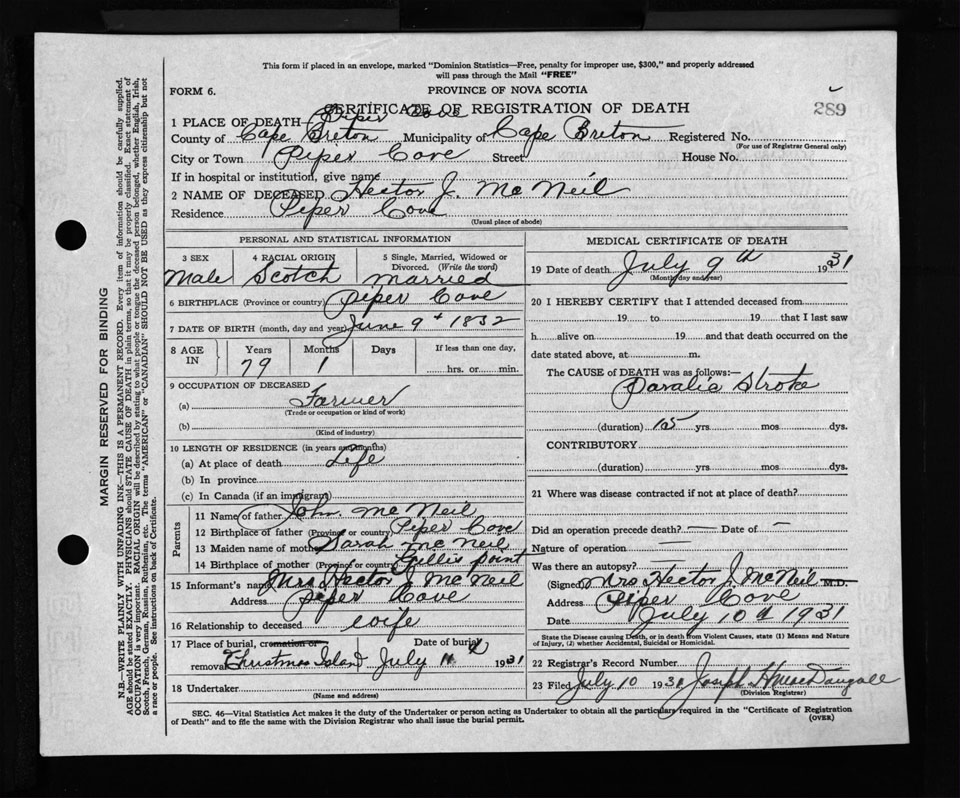 This form if placed in an envelope, marked "Dominion Statistics—Free, penalty for improper use, $300," and properly addressed
will pass through the Mail "FREE"
FORM 6. PROVINCE OF NOVA SCOTIA
CERTIFICATE OF REGISTRATION OF DEATH 289
1 PLACE OF DEATH— Piper Cove
County of Cape Breton Municipality of Cape Breton Registered No.
(For use of Registrar General only)
City or Town Piper Cove Street House No.
If in hospital or institution, give name
2 NAME OF DECEASED Hector J. McNeil
Residence Piper Cove
(Usual place of abode)
PERSONAL AND STATISTICAL INFORMATION
3 SEX 4 RACIAL ORIGIN 5 Single, Married, Widowed or Divorced. (Write the word)
Male Scotch Married
6 BIRTHPLACE (Province or country) Piper Cove
7 DATE OF BIRTH (month, day and year) June 9th 1832
8 AGE IN Years Months Days If less than one day,
79 1 hrs. or min.
9 OCCUPATION OF DECEASED
(a) Farmer
(Trade or occupation or kind of work)
(b)
(Kind of industry)
10 LENGTH OF RESIDENCE (in years and months)
(a) At place of death Life
(b) In province
(c) In Canada (if an immigrant)
Parents
11 Name of father John McNeil
12 Birthplace of father (Province or country) Piper Cove
13 Maiden name of mother Sarah McNeil
14 Birthplace of mother (Province or country) Point
15 Informant's name Mrs Hector J McNeil
Address Piper Cove
16 Relationship to deceased Wife
17 Place of burial, cremation or Date of burial
removal Christmas Island July 11 1931
18 Undertaker
(Name and address)
MEDICAL CERTIFICATE OF DEATH
19 Date of death July 9th 1931
(Month, day and year)
20 I HEREBY CERTIFY that I attended deceased from
19 to 19 that I last saw
h alive on 19 and that death occurred on the
date stated above, at m.
The CAUSE of DEATH was as follows:—
Paralia Stroke
(duration) 15 yrs. mos. dys.
CONTRIBUTORY
(duration) yrs. mos. dys.
21 Where was disease contracted if not at place of death?
Did an operation precede death? — Date of —
Nature of operation —
Was there an autopsy? —
(Signed) Mrs Hector J. McNeil M.D.
Address Piper Cove
Date July 10th 1931
State the Disease causing Death, or in death from Violent Causes, state (1) Means and Nature
of Injury, (2) whether Accidental, Suicidal or Homicidal.
22 Registrar's Record Number
23 Filed July 10 1931 Joseph H MacDougall
(Division Registrar)
SEC. 46—Vital Statistics Act makes it the duty of the Undertaker or person acting as Undertaker to obtain all the particulars required in the "Certificate of Registration
of Death" and to file the same with the Division Registrar who shall issue the burial permit. (OVER)
MARGIN RESERVED FOR BINDING
N.B.—WRITE PLAINLY WITH UNFADING INK—THIS IS A PERMANENT RECORD. Every item of information should be carefully supplied.
AGE should be stated EXACTLY. PHYSICIANS should STATE CAUSE OF DEATH in plain terms, so that it may be properly classified. Exact statement of
OCCUPATION is very important. RACIAL ORIGIN will be described by stating to what people or tongue the deceased person belonged, whether English, Irish,
Scotch, French, German, Russian, Ruthenian, etc. The terms "AMERICAN" or "CANADIAN" SHOULD NOT BE USED as they express citizenship but not
a race or people. See instructions on back of Certificate.